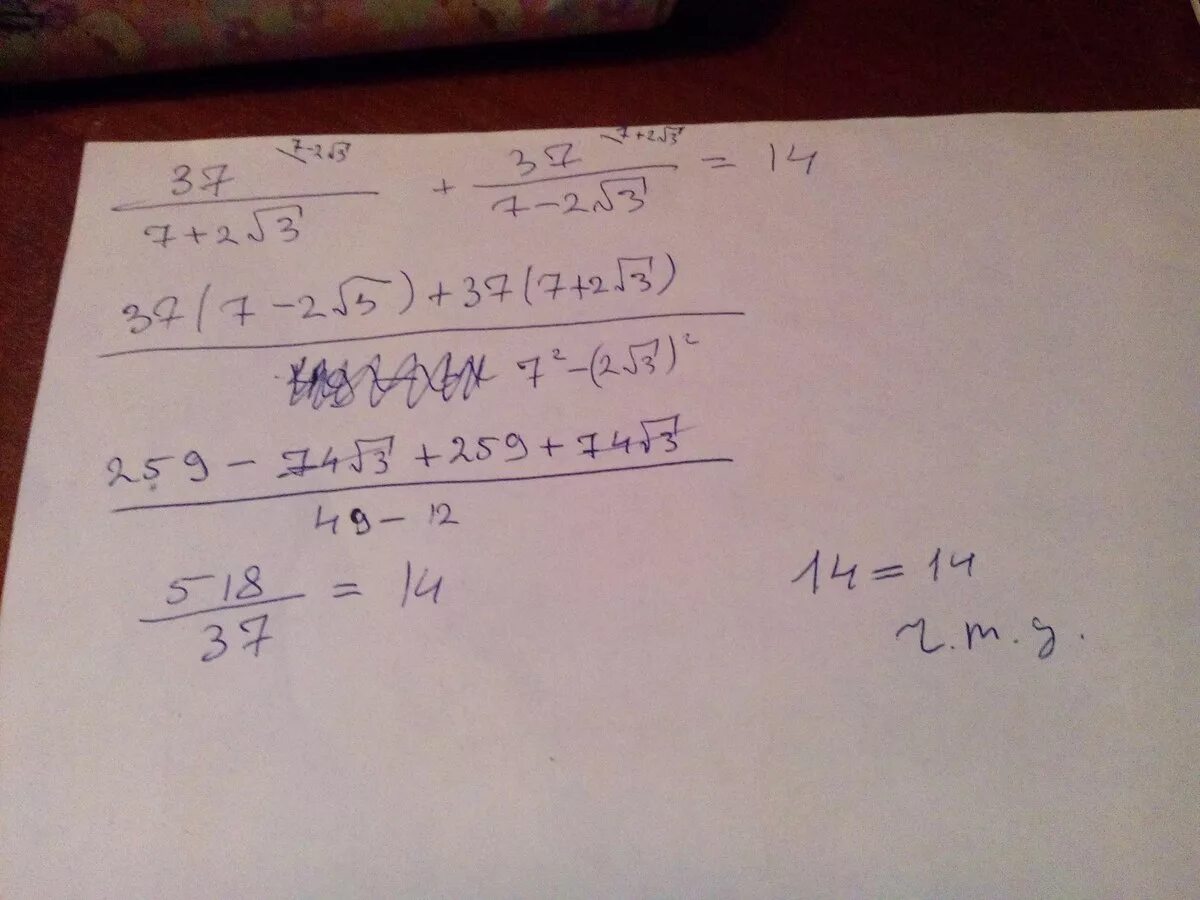 37 ⟋7-2√3 / 7+2√3 + 37 ⟋7+2√3 / 7-2√3 = 14
37(7-2√3)+37(7+2√3) / 7²-(2√3)²
259-74√3+259+74√3 / 49-12
518/37 = 14
14=14
ч.т.д.